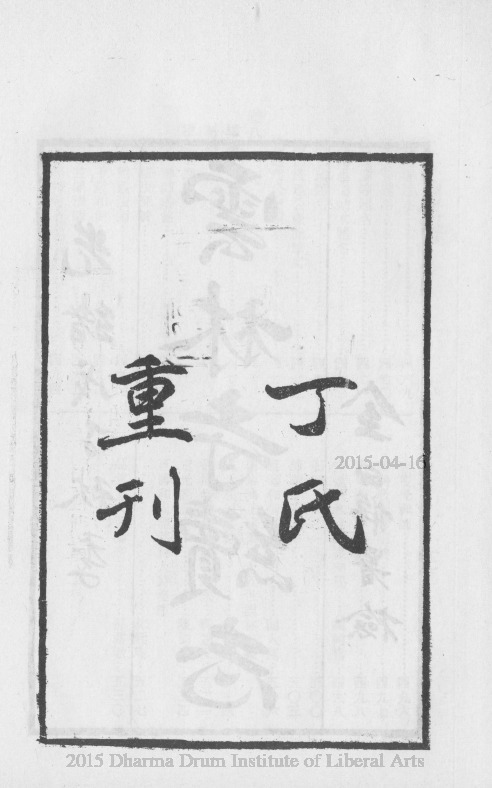 丁氏
重刊
2015-04-16
2015 Dharma Drum Institute of Liberal Arts